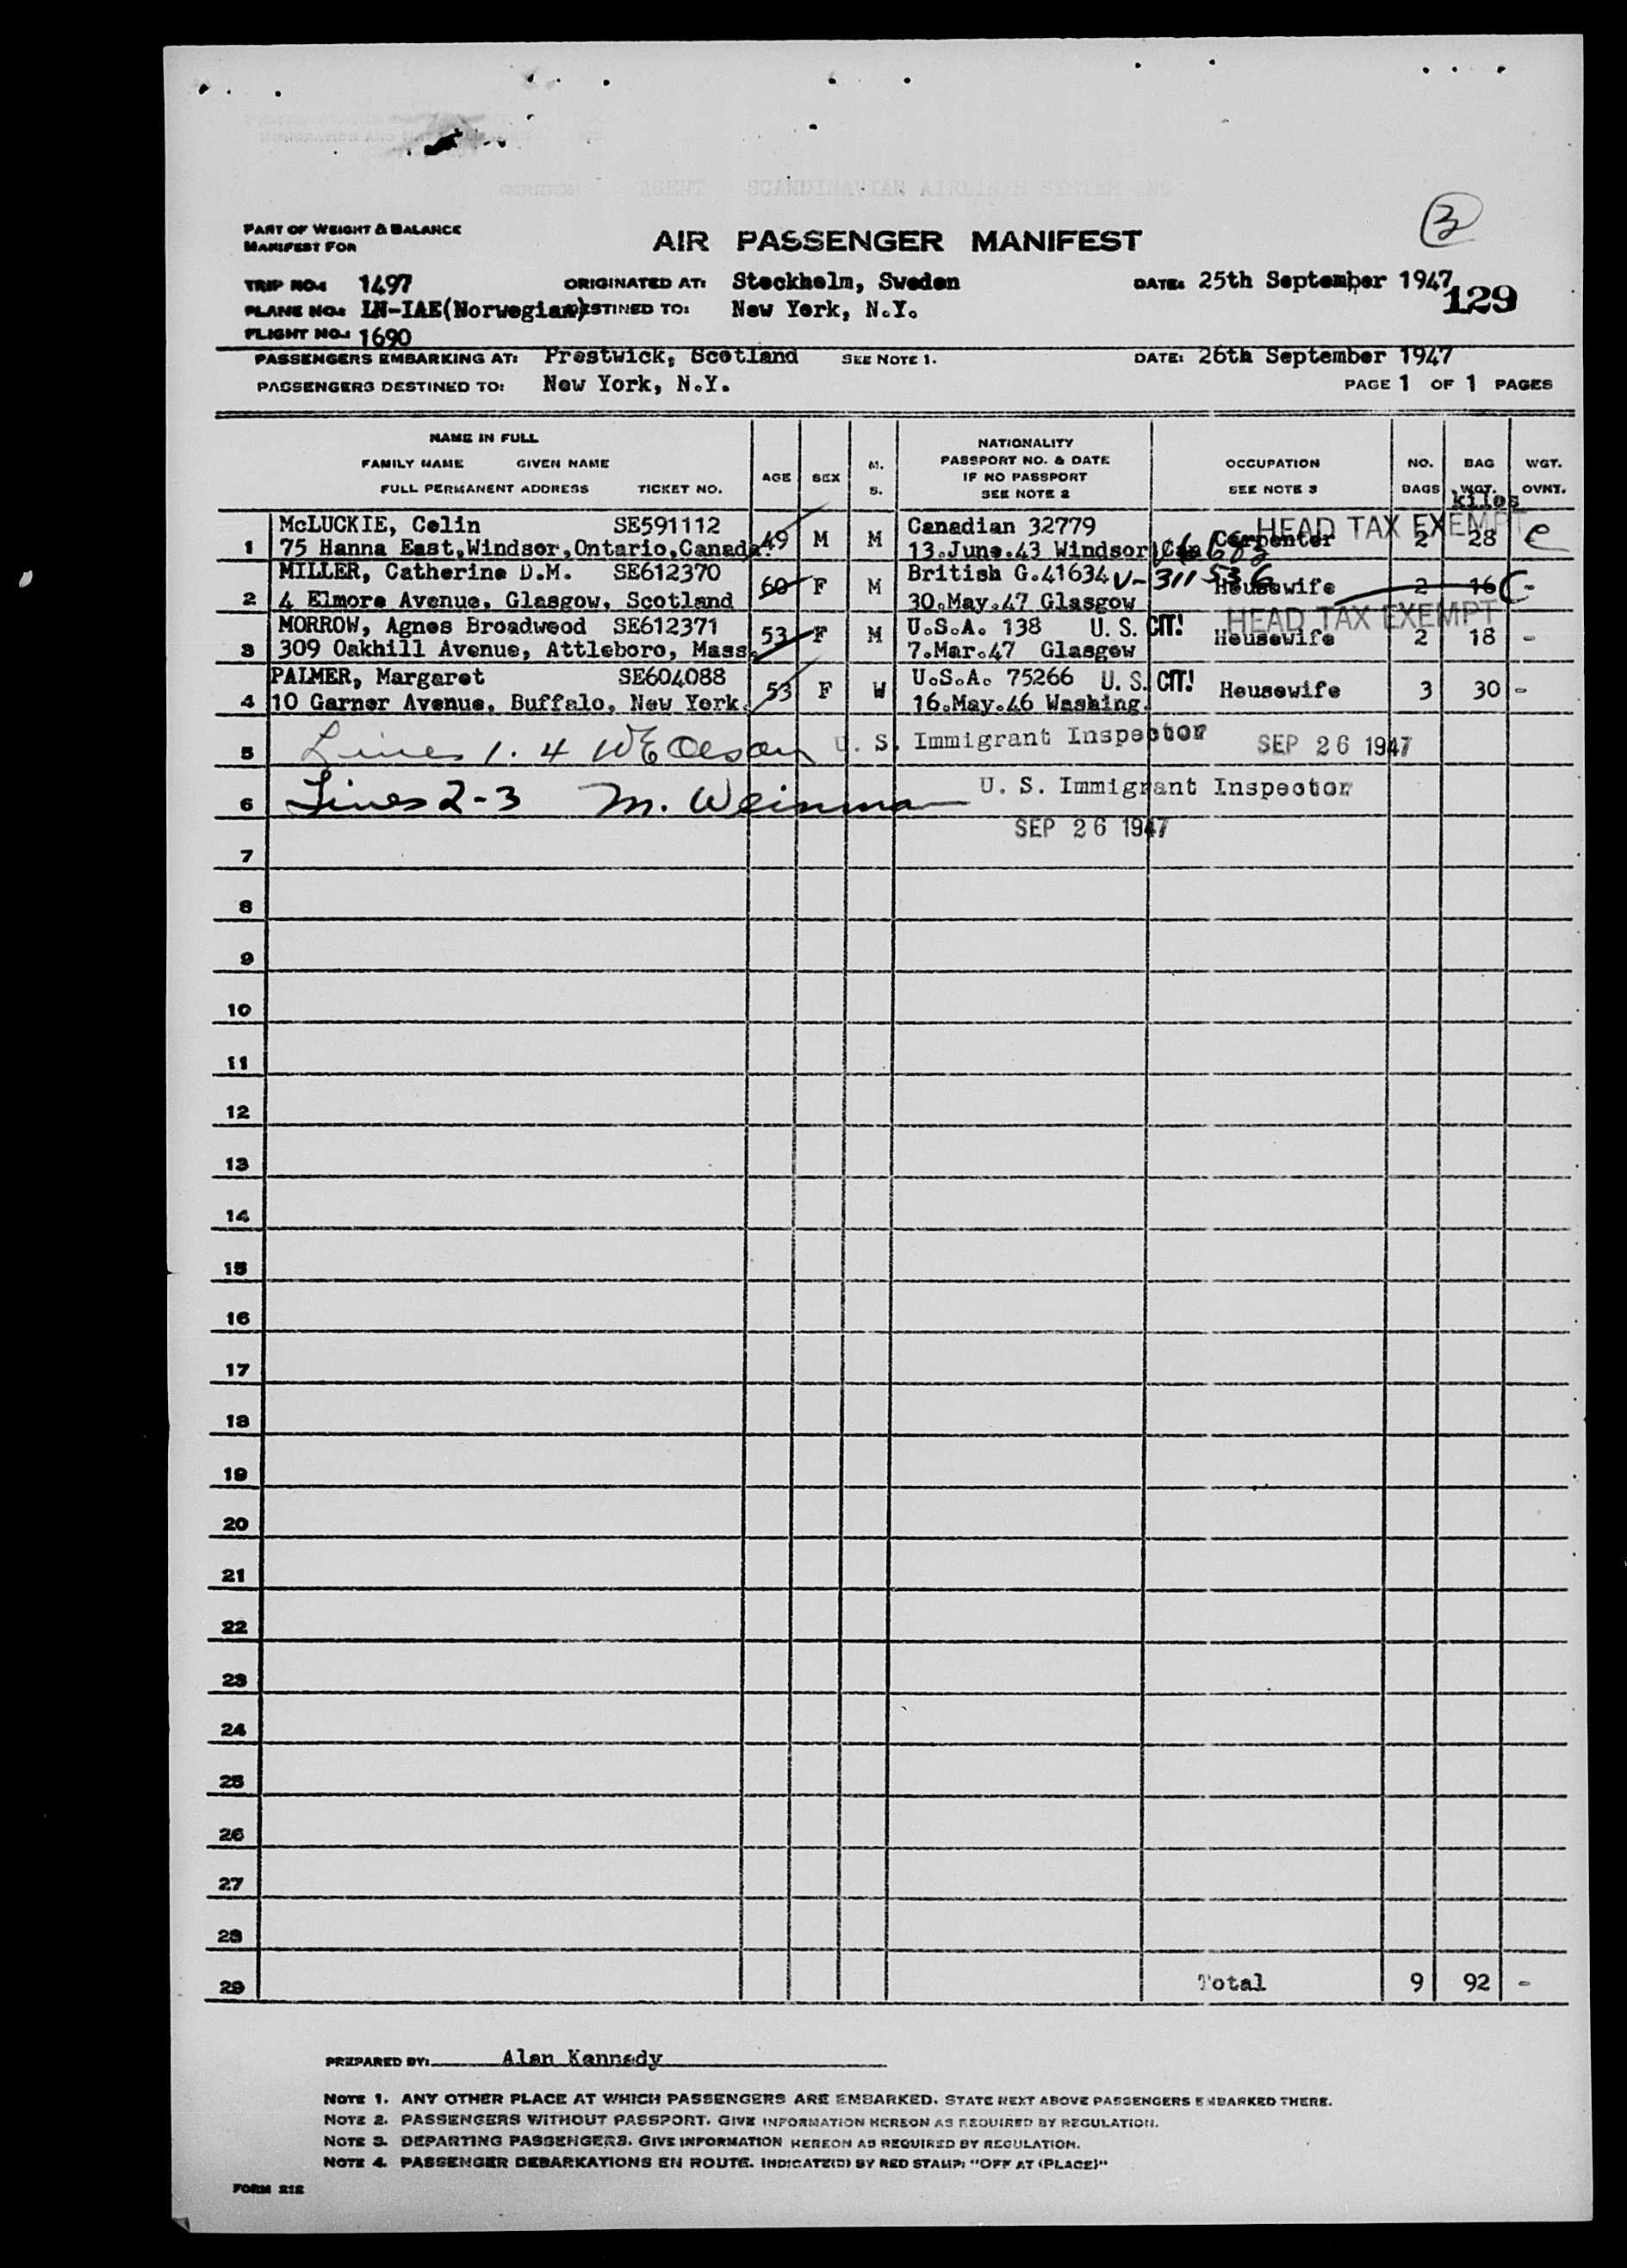 PART OF WEIGHT & BALANCE
MANIFEST FOR
AIR PASSENGER MANIFEST
3
TRIP NO.: 1497 ORIGINATED AT: Stockholm, Sweden DATE: 25th September 1947
129
PLANE NO.: LN-IAE(Norwegian) DESTINED TO: New York, N.Y.
FLIGHT NO.: 1690
PASSENGERS EMBARKING AT: Prestwick, Scotland SEE NOTE 1. DATE: 26th September 1947
PASSENGERS DESTINED TO: New York, N.Y. PAGE 1 OF 1 PAGES
NAME IN FULL
FAMILY NAME GIVEN NAME
FULL PERMANENT ADDRESS TICKET NO.
AGE SEX M. S.
NATIONALITY
PASSPORT NO. & DATE
IF NO PASSPORT
SEE NOTE 2
OCCUPATION
SEE NOTE 3
NO. BAGS
BAG WGT. kilos
WGT. OVNT.
1 McLUCKIE, Colin SE591112 49 M M Canadian 32779 Carpenter HEAD TAX EXEMPT 2 28
75 Hanna East,Windsor,Ontario,Canada. 13.June.43 Windsor,Can
2 MILLER, Catherine D.M. SE612370 60 F M British G.41634 V-311536 Housewife 2 16 C -
4 Elmore Avenue, Glasgow, Scotland 30.May.47 Glasgow HEAD TAX EXEMPT
3 MORROW, Agnes Broadwood SE612371 53 F M U.S.A. 138 U. S. CIT! Housewife 2 18 -
309 Oakhill Avenue, Attleboro, Mass. 7.Mar.47 Glasgow
4 PALMER, Margaret SE604088 53 F W U.S.A. 75266 U. S. CIT! Housewife 3 30 -
10 Garner Avenue, Buffalo, New York. 16.May.46 Washing.
5 Lines 1. 4 W E Olson U. S. Immigrant Inspector SEP 26 1947
6 Lines 2-3 M. Weinman U. S. Immigrant Inspector
SEP 26 1947
7
8
9
10
11
12
13
14
15
16
17
18
19
20
21
22
23
24
25
26
27
28
29 Total 9 92 -
PREPARED BY: Alan Kennedy
NOTE 1. ANY OTHER PLACE AT WHICH PASSENGERS ARE EMBARKED. STATE NEXT ABOVE PASSENGERS EMBARKED THERE.
NOTE 2. PASSENGERS WITHOUT PASSPORT. GIVE INFORMATION HEREON AS REQUIRED BY REGULATION.
NOTE 3. DEPARTING PASSENGERS. GIVE INFORMATION HEREON AS REQUIRED BY REGULATION.
NOTE 4. PASSENGER DEBARKATIONS EN ROUTE. INDICATE(D) BY RED STAMP: "OFF AT (PLACE)"
FORM 212